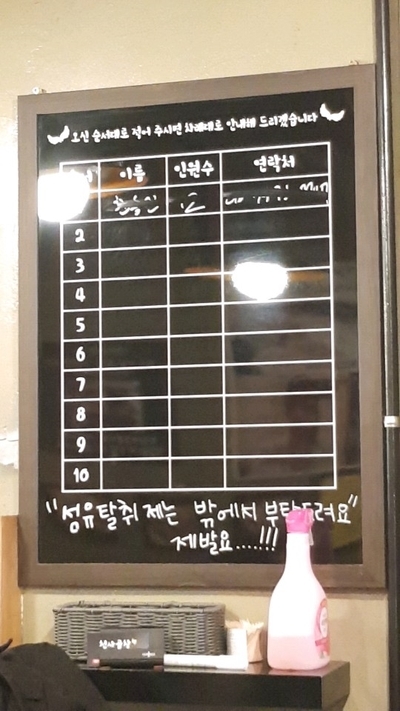 오신 순서대로 적어 주시면 차례대로 안내해 드리겠습니다
이름 인원수 연락처
2
3
4
5
6
7
8
9
10
"섬유탈취제는 밖에서 부탁드려요"
제발요....!!!